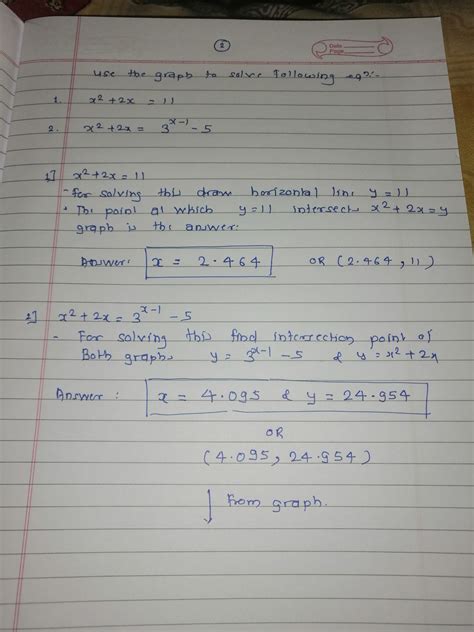 2
Date
Page
use the graph to solve following eqn:-
1. x² + 2x = 11
2. x² + 2x = 3^x-1 - 5
1] x² + 2x = 11
- For solving this draw horizontal line y = 11
• The point at which y = 11 intersect x² + 2x = y
graph is the answer:
Answer: x = 2.464 OR (2.464, 11)
2] x² + 2x = 3^x-1 - 5
- For solving this find intersection point of
Both graphs y = 3^x-1 - 5 & y = x² + 2x
Answer : x = 4.095 & y = 24.954
OR
(4.095, 24.954)
↓ From graph.